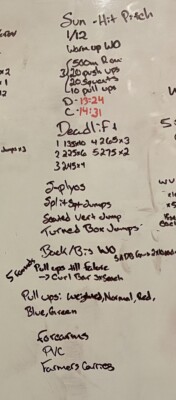 Sun - Hit Pitch
1/12
Warm up WO
500m Row
3 20 push ups
20 squats
10 pull ups
D - 13:24
C - 14:31
Deadlift
1 135x10 4 265x3
2 225x6 5 275x2
3 245x4
Split Sqt Jumps
Seated Vert Jump
Turned Box Jumps
Back/Bi's WO
5 rounds
Pull ups till failure
→ Curl Bar
Pull ups: Weighted, Normal, Red,
Blue, Green
Forearms
PVC
Farmers Carries